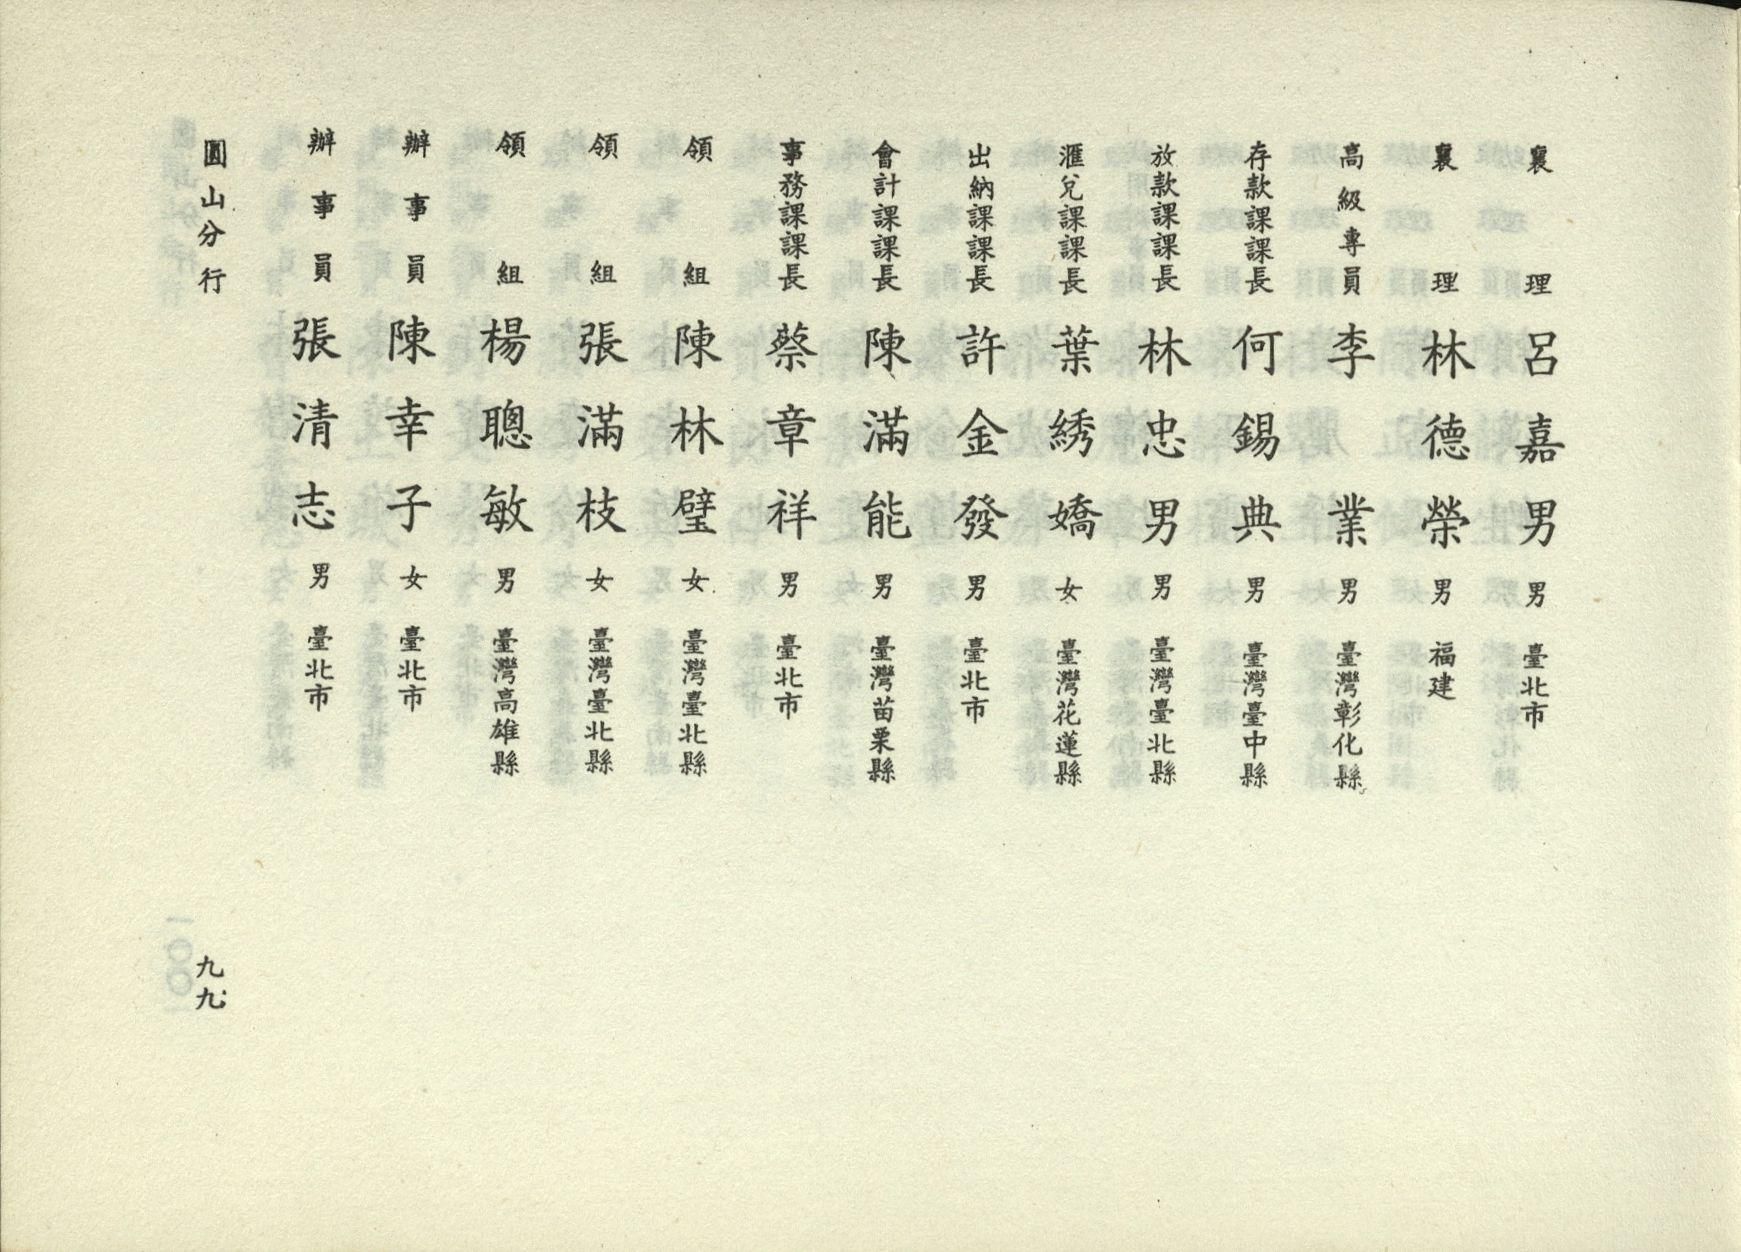 襄理 呂嘉男 男 臺北市
襄理 林德榮 男 福建
高級專員 李業 男 臺灣彰化縣
存款課課長 何錫典 男 臺灣臺中縣
放款課課長 林忠男 男 臺灣臺北縣
滙兌課課長 葉綉嬌 女 臺灣花蓮縣
出納課課長 許金發 男 臺北市
會計課課長 陳滿能 男 臺灣苗栗縣
事務課課長 蔡章祥 男 臺北市
領組 陳林璧 女 臺灣臺北縣
領組 張滿枝 女 臺灣臺北縣
領組 楊聰敏 男 臺灣高雄縣
辦事員 陳幸子 女 臺北市
辦事員 張清志 男 臺北市
圓山分行
九九